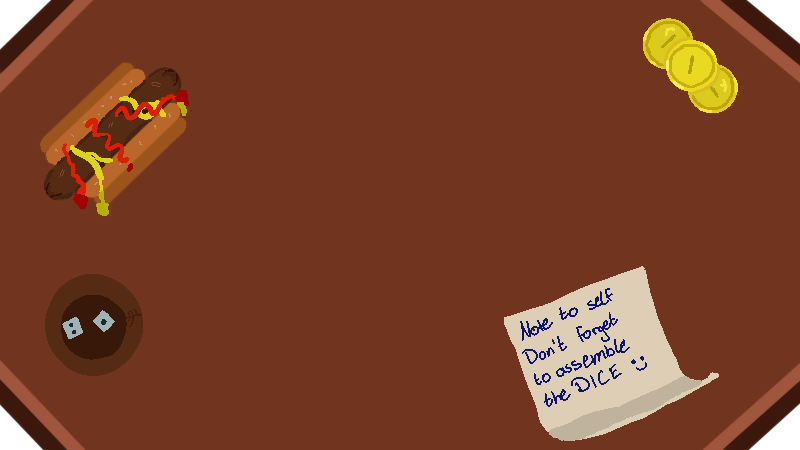 Note to self
Don't forget
to assemble
the DICE :)